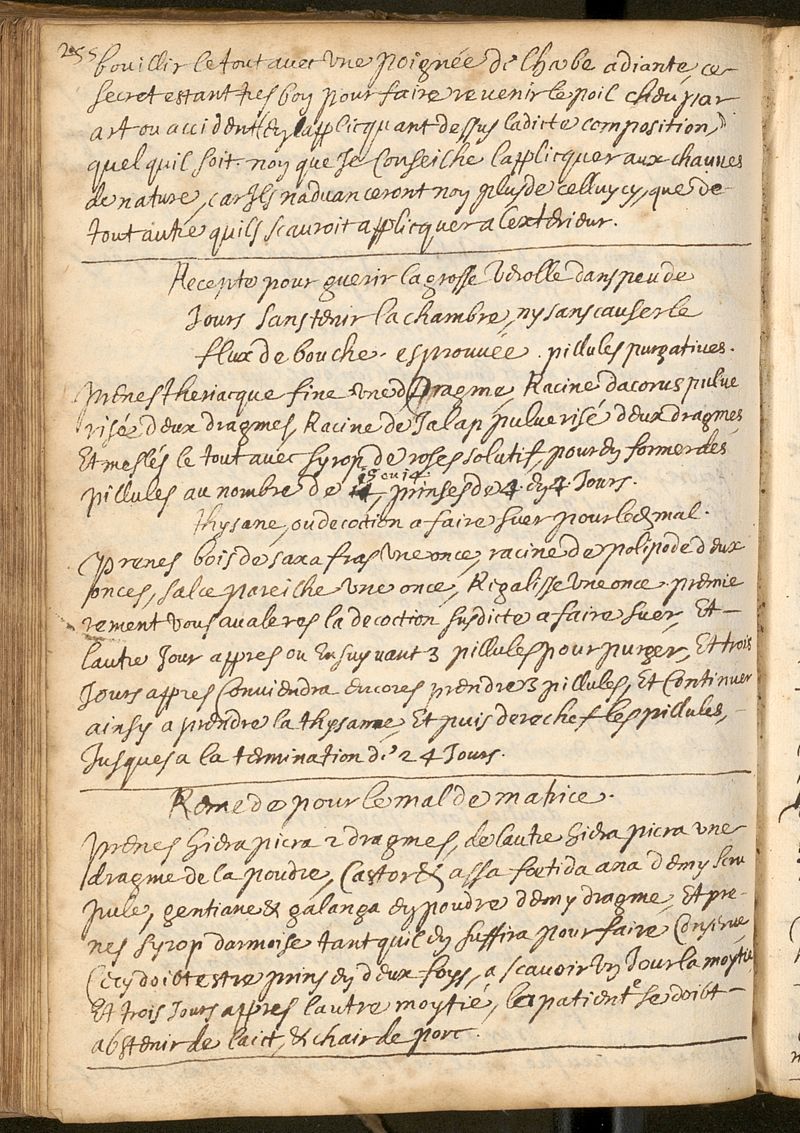 255
bouillir le tout avec une poignée de lharbe adiante, ce
secret estant tres bon pour faire revenir le poil cheu par
art ou accident en lapplicquant dessus ladicte composition,
quel quil soit. non que Je Conseilhe lapplicquer aux chauves
de nature, car Ils nadvanceront non plus de celluycy, que de
tout autre quils scauroit applicquer a lexterieur.
Recepte pour guerir la grosse Verolle dans peu de
Jours sans tenir la chambre, ny sans causer le
flux de bouche. esprouvée. pillules purgatives.
Prenes theriacque fine une Dragme, Racine dacorus pulve
risée deux dragmes, Racine de Jalap pulverisé deux dragmes
Et meslés le tout avec syrop de roses solutif, pour en former des
15 ou 14
pillules au nombre de prinses de 4. en 4. Jours.
thysane, ou decoction a faire suer pour led mal.
Prenes bois de saxafras une once, racine de polipode deux
onces, salce pareilhe une once, Rigalisse une once. premie
rement vous avaleres la decoction susdicte a faire suer, Et
lautre Jour appres ou Ensuyvant 3 pillules pour purger, Et trois
Jours appres Conviendra encores prendre 3 pillules, Et Continuer
ainsy a prendre la thysame, Et puis derechef les pillules,
Jusques a la termination de 24 Jours.
Remede pour le mal de matrice.
Prenes hiera picra 2 dragmes, de lautre hiera picra une
dragme de la poudre, Castor & assa foetida ana demy scru
pule, gentiane & galanga en poudre demy dragme, Et pre-
nes syrop darmoise tant quil en suffira pour faire Conserve,
Cecy doibt estre prins en deux foys, a scavoir un Jour la moytie
Et trois Jours appres lautre moytié, la patiente se doibt
abstenir de laict, & chair de porc.